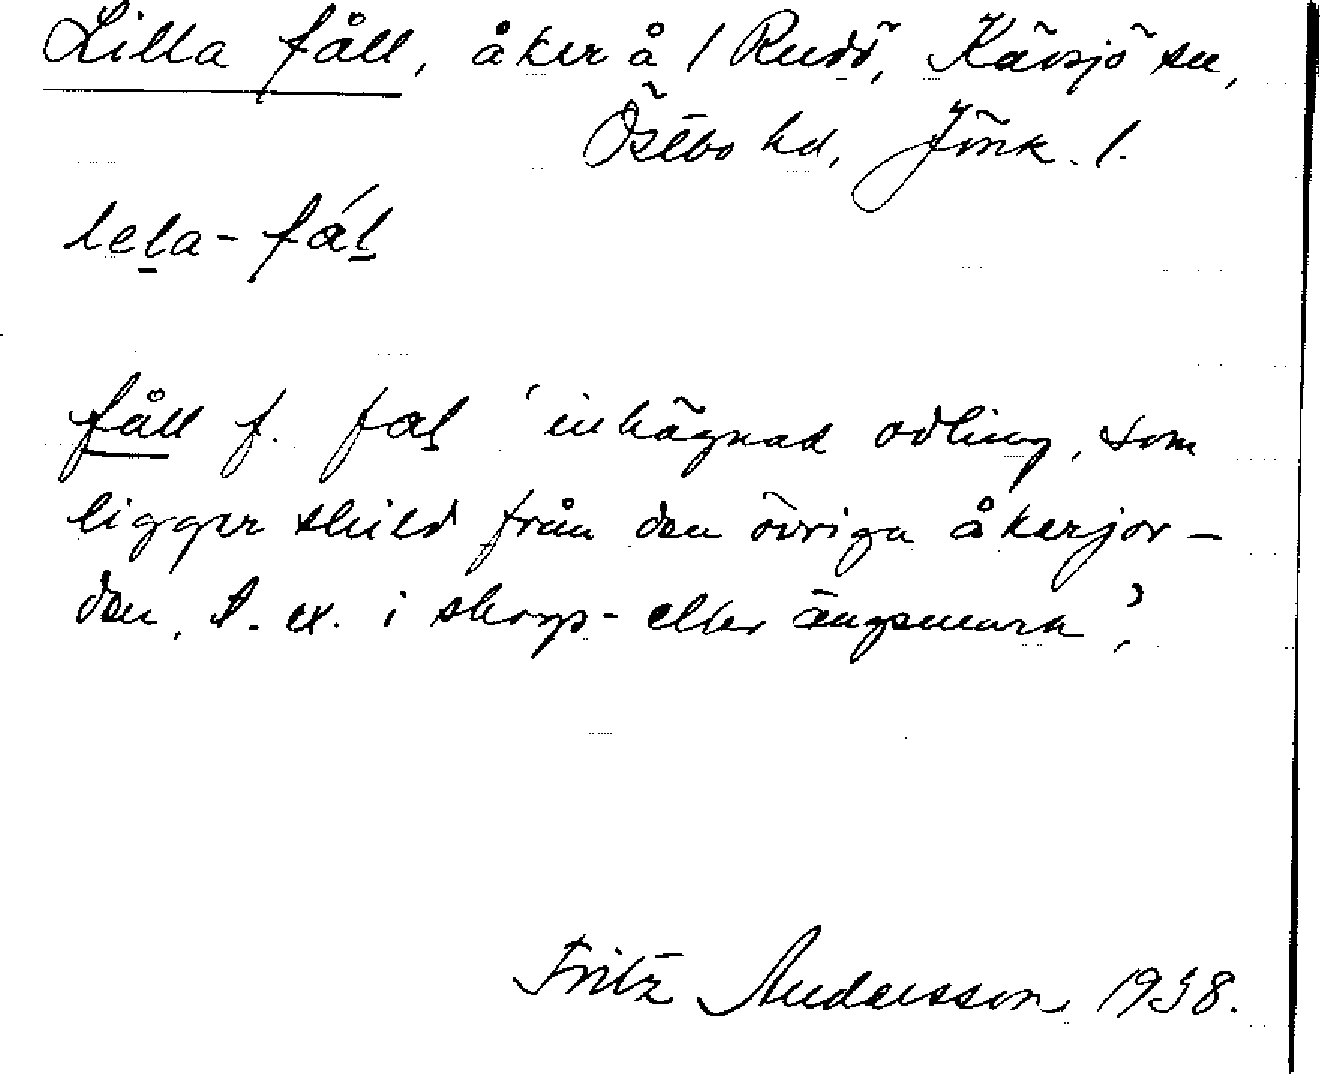 Lilla fåll, åker å 1 Rudö, Kävsjö sn,
Östbo hd, Jönk. l.
lela-fál
fåll f. fal 'inhägnad odling, som
ligger skild från den övriga åkerjor-
den, t. ex. i skogs- eller ängsmark'.
Fritz Andersson 1938.